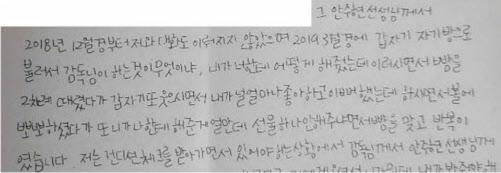 그 안주현선생님께서
2018년 12월경부터 저와 대화도 이루어지지 않았으며 2019 3월경에 갑자기 자기방으로
불러서 감독님이 하는것이 무엇이냐, 내가 너한테 어떻게 해줬는데 이러시면서 뺨을
2차례 때렸다가 갑자기 또 웃으시면서 내가 널 얼마나 좋아하고 이뻐했는데 하시면서 볼에
뽀뽀하셨다가 또 니가 나한테 해준게 얼만데 선물하나 안해주냐면서 뺨을 맞고 반복이
였습니다. 저는 컨디션체크를 받아가면서 있어야하는상황에서 감독님께서 안주현선생님께